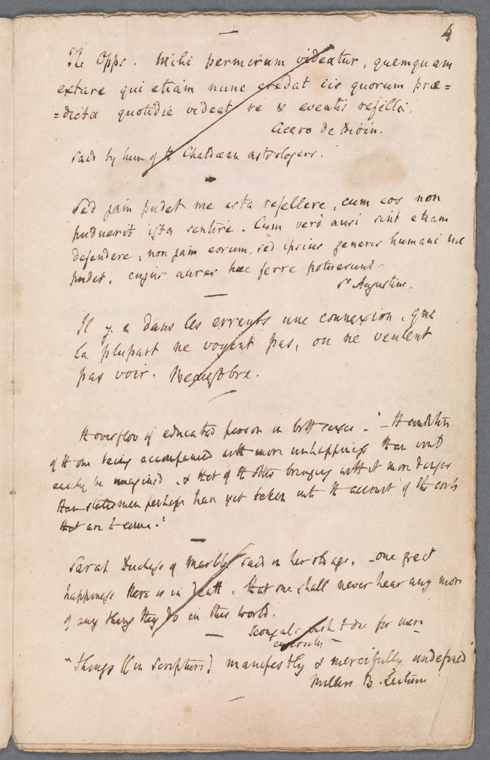 4
The Opps. Mihi permirum videatur, quemquam
extare qui etiam nunc credat iis quorum præ=
=dicta quotidie videat re & eventis refelli.
Cicero de Divin.
Said by him of the Chaldean astrologers.
Sed jam pudet me ista refellere, cum eos non
puduerit ista sentire. Cum verò ausi sint etiam
defendere, non jam eorum, sed ipsius generis humani me
pudet, cujus aures hæc ferre potuerunt.
St Augustine.
Il y a dans les erreurs une connexion, que
la plupart ne voyent pas, ou ne veulent
pas voir.
overflow of educated person in both sexes. "The condition
of the one being accompanied with more unhappiness than could
easily be imagined, & that of the other bringing with it more danger
than statesmen perhaps have yet taken into the account of the evils
that are to come."
Sarah Duchess of Marlbro said in her old age, one great
happiness there is in Death, that one shall never hear any more
of any thing they do in this world.
"Things (in Scripture) manifestly & mercifully undefined"
Millers B. Lectures